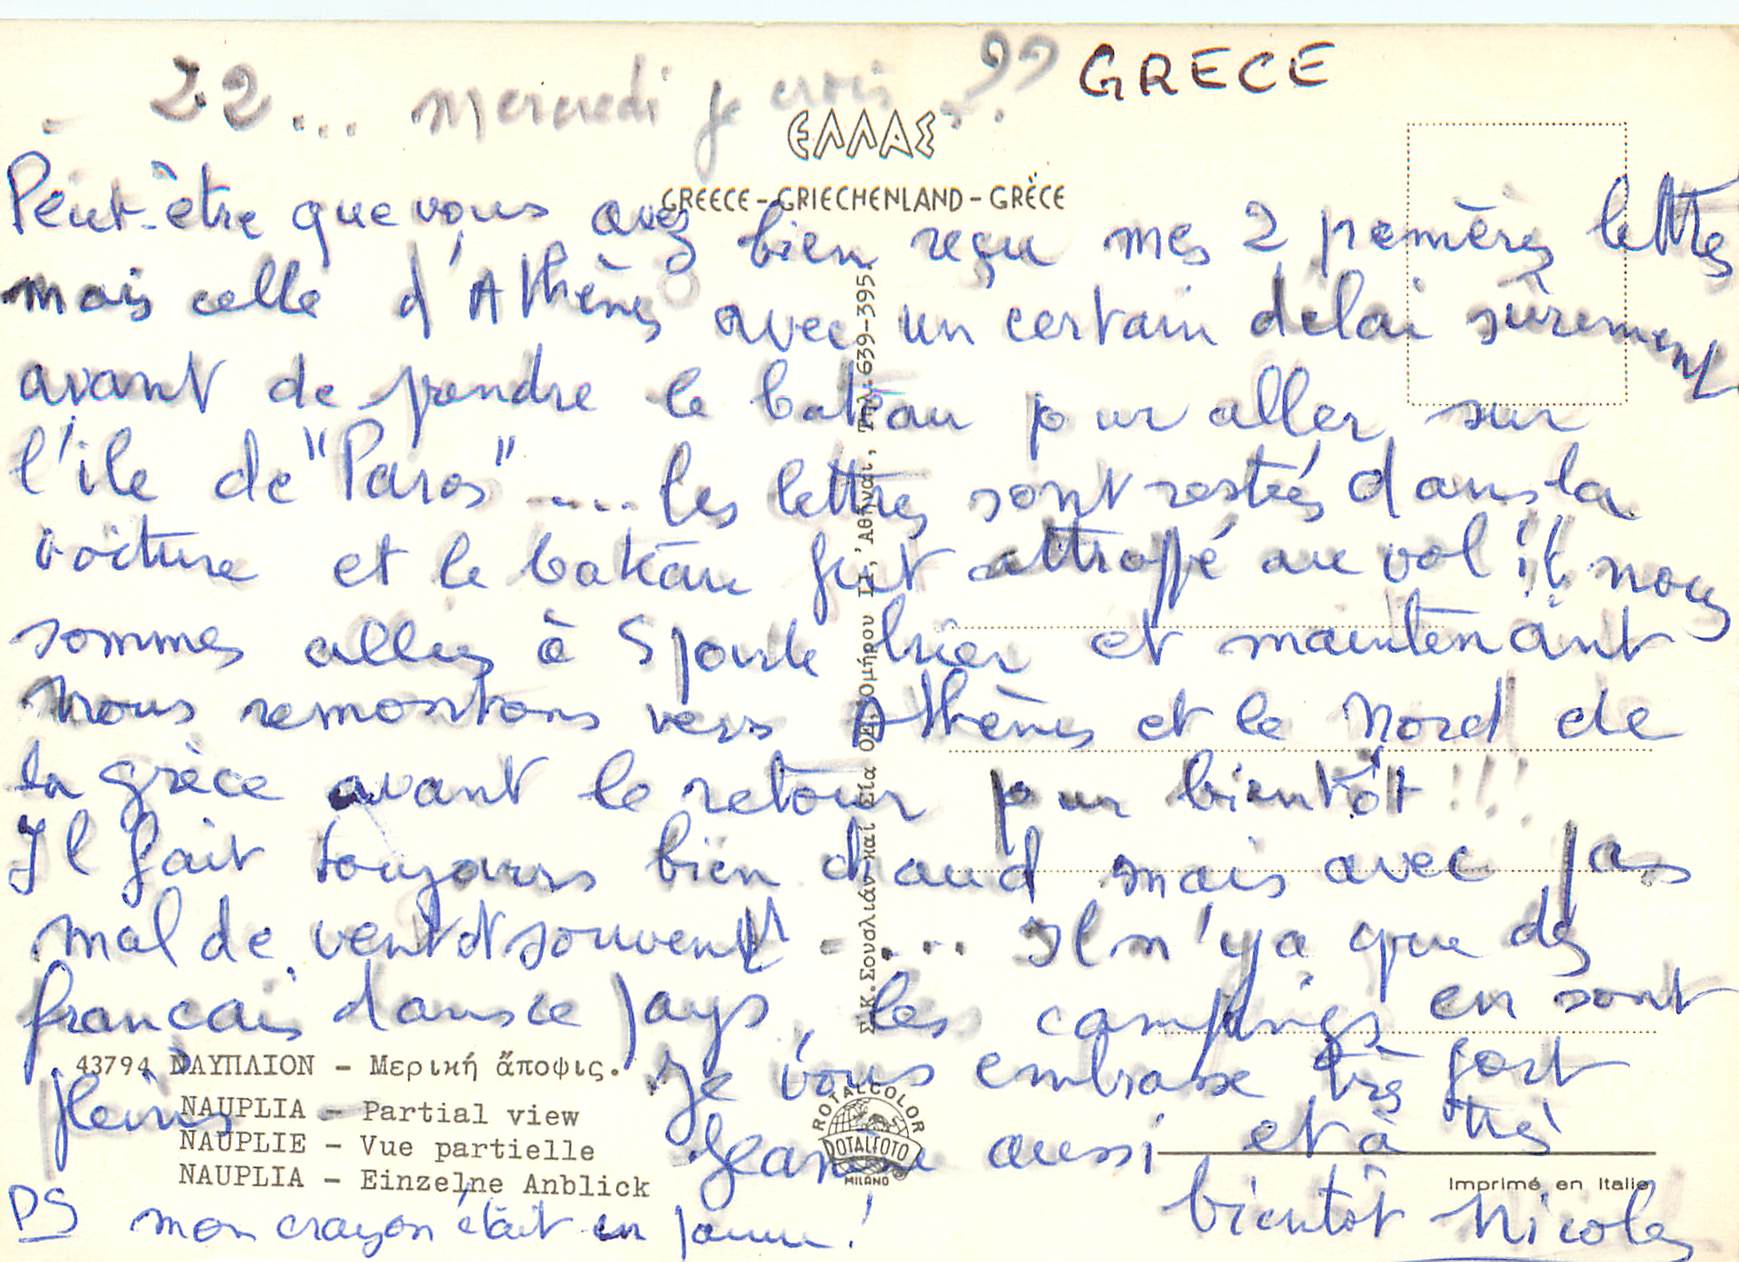 22... mercredi je crois ?? GRECE
ΕΛΛΑΣ
GREECE - GRIECHENLAND - GRÈCE
Peut-être que vous avez bien reçu mes 2 premières lettres
mais celle d'Athènes avec un certain délai sûrement
avant de prendre le bateau pour aller sur
l'ile de "Paros" .... les lettres sont restées dans la
voiture et le bateau fut attrappé au vol !! nous
sommes allés à Sparte hier et maintenant
nous remontons vers Athènes et le Nord de
la grèce avant le retour pour bientôt !!!
Il fait toujours bien chaud mais avec pas
mal de vent souvent .... Il n'y a que des
francais dans ce pays, les campings en sont
pleins
Je vous embrasse très fort
Jeanine aussi et à très
bientôt Nicolas
PS mon crayon était en panne !
43794 ΝΑΥΠΛΙΟΝ - Μερική ἄποψις.
NAUPLIA - Partial view
NAUPLIE - Vue partielle
NAUPLIA - Einzelne Anblick
ROTALCOLOR
ROTALFOTO
MILANO
Imprimé en Italie
639-395.